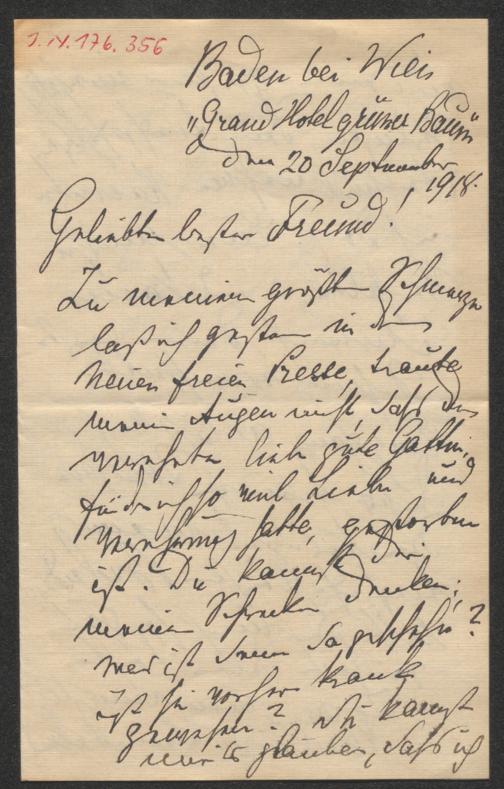 I.N. 176.356
Baden bei Wien
"Grand Hotel grüner Baum"
den 20 September
1918.
Geliebter bester Freund!
Zu meinem größten Schmerze
las ich gestern in der
Neuen freien Presse, traute
meinen Augen nicht, dass die
verehrte liebe gute Gattin,
für die ich so viel Liebe und
Verehrung hatte, gestorben
ist. Du kannst Dir
meinen Schrecken denken;
was ist denn da geschehen?
ist sie vorher krank
gewesen? Du kannst
mir's glauben, dass ich